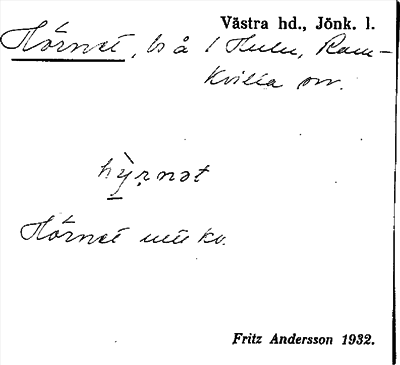 Västra hd., Jönk. l.
Hörnet, ls å 1 Hulu, Ram-
kvilla sn.
hỳrnət
Hörnet
Fritz Andersson 1932.